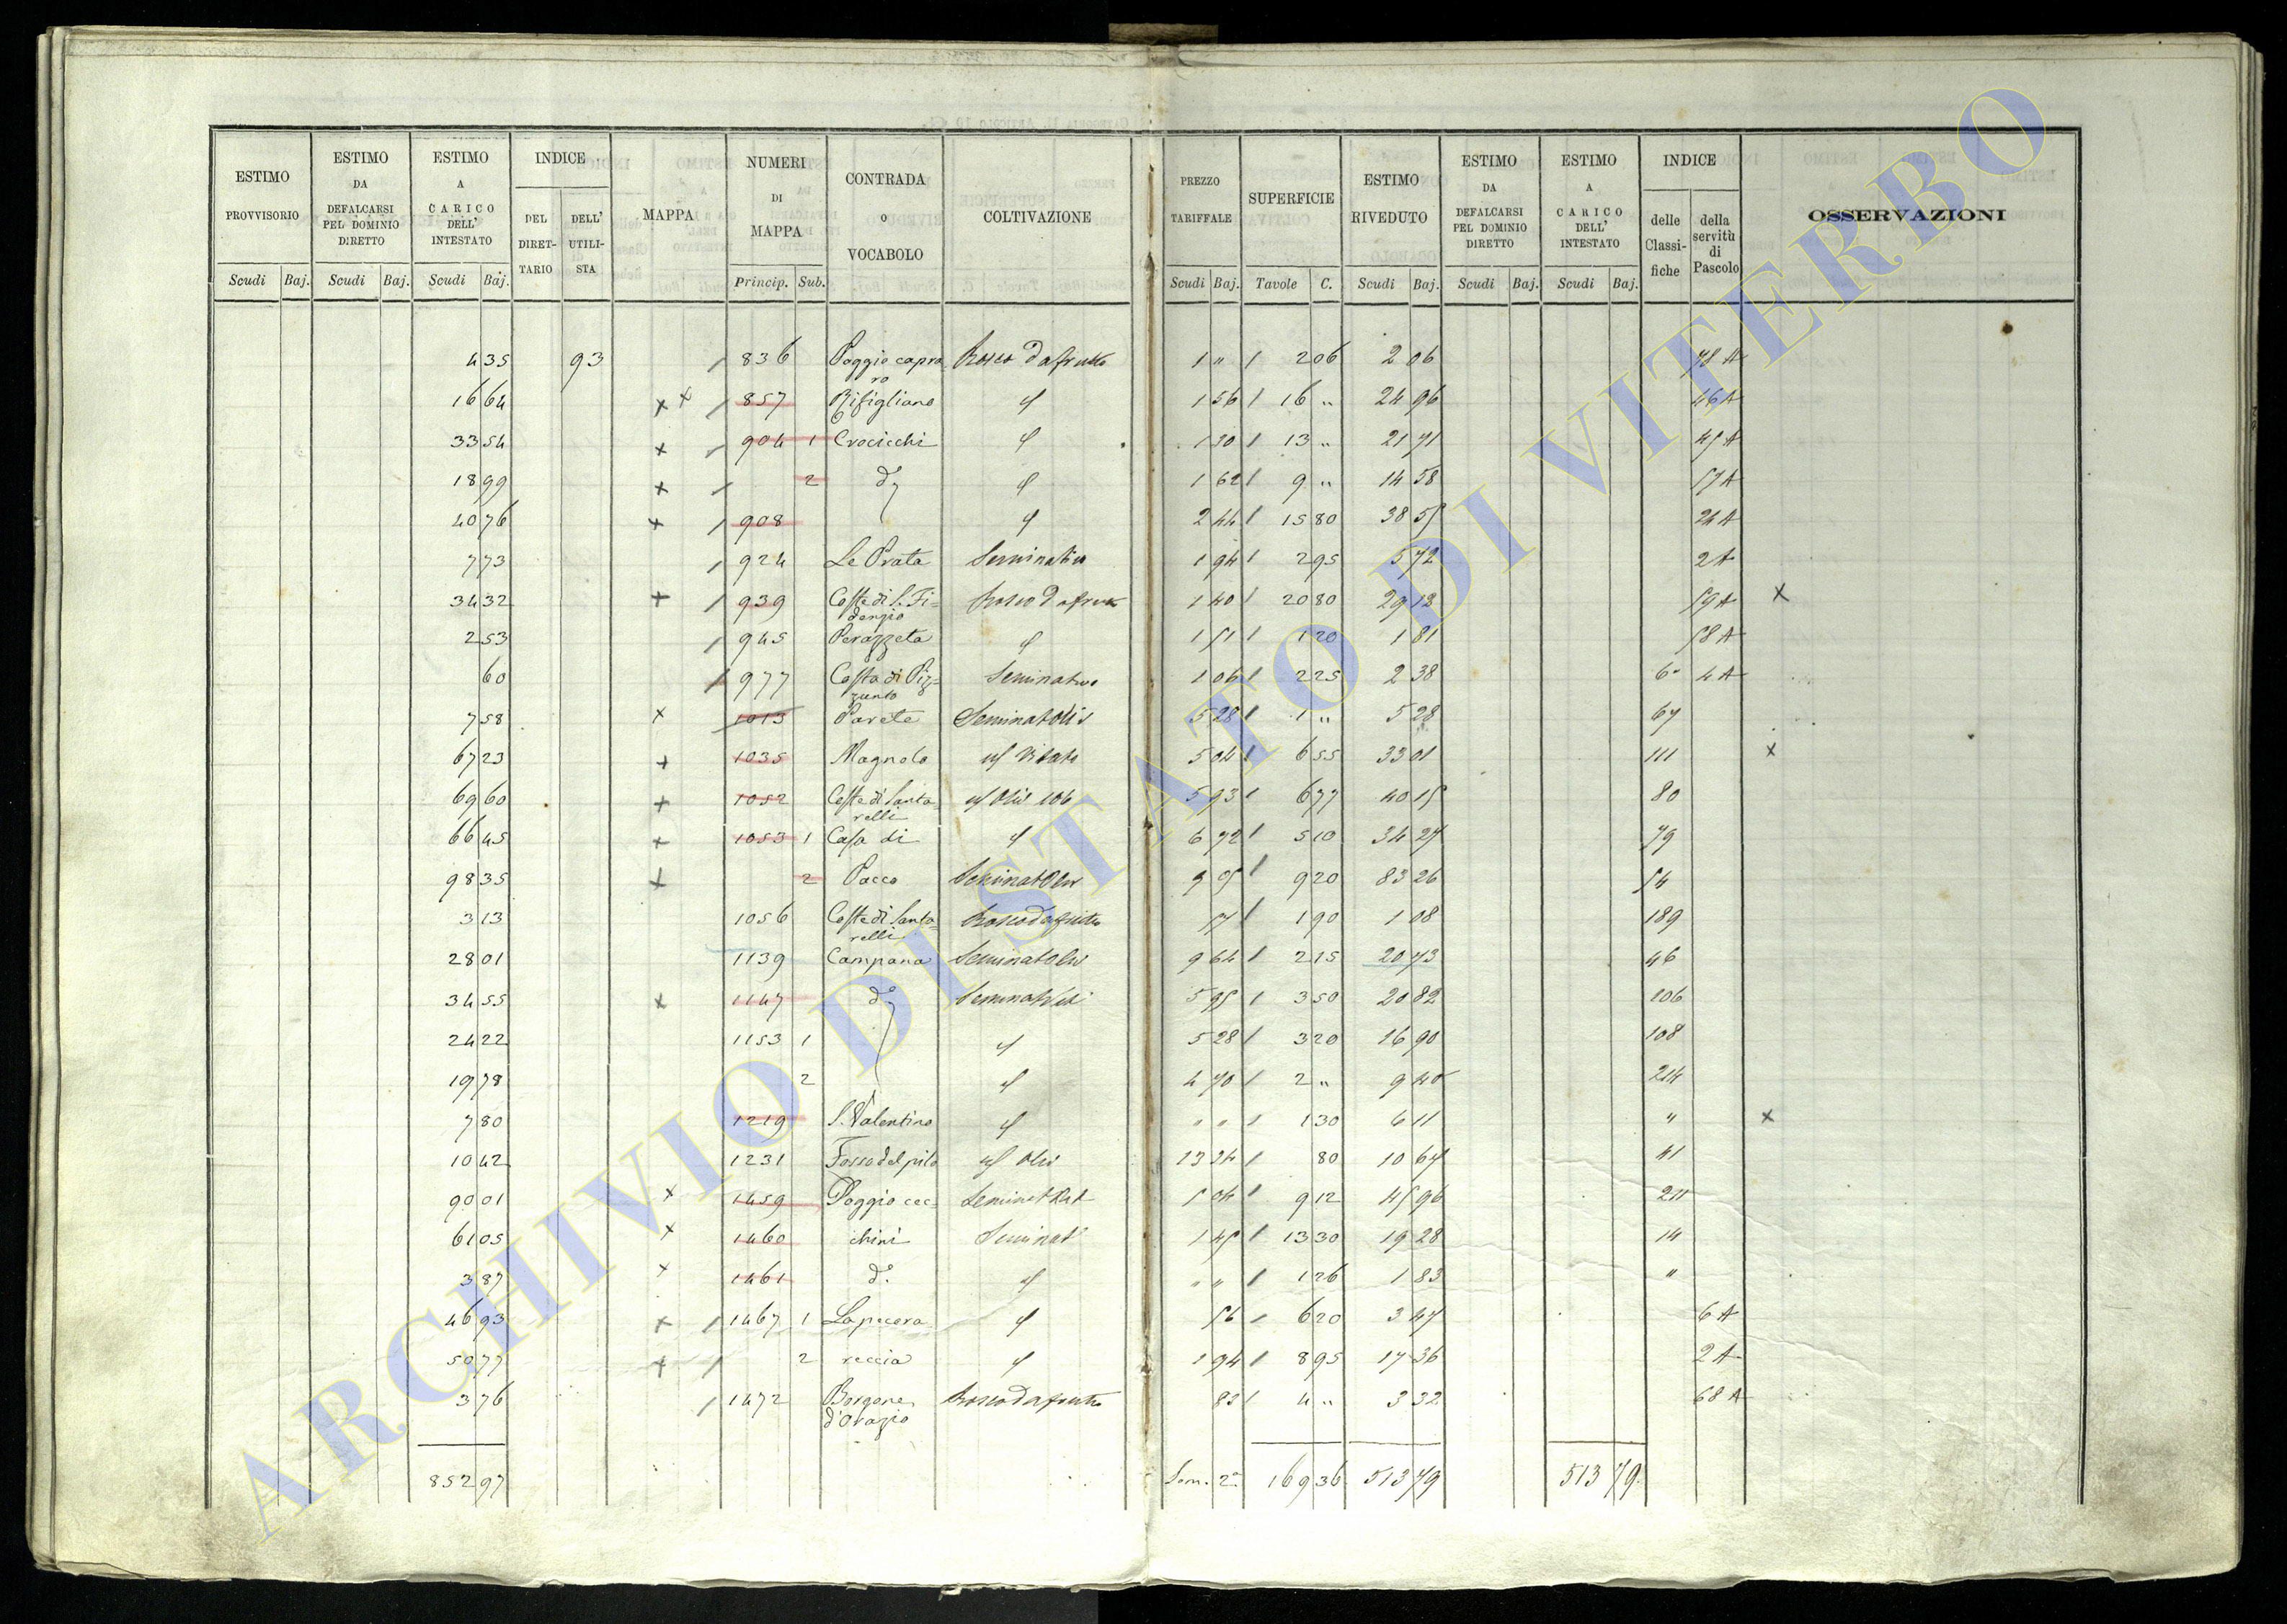 ESTIMO PROVVISORIO | ESTIMO DA DEFALCARSI PEL DOMINIO DIRETTO | ESTIMO A CARICO DELL' INTESTATO | INDICE | MAPPA | NUMERI DI MAPPA | CONTRADA O VOCABOLO | COLTIVAZIONE | PREZZO TARIFFALE | SUPERFICIE | ESTIMO RIVEDUTO | ESTIMO DA DEFALCARSI PEL DOMINIO DIRETTO | ESTIMO A CARICO DELL' INTESTATO | INDICE | OSSERVAZIONI
DEL DIRETTARIO | DELL' UTILISTA | delle Classifiche | della servitù di Pascolo
Scudi Baj. | Scudi Baj. | Scudi Baj. | Princip. Sub. | Scudi Baj. | Tavole C. | Scudi Baj. | Scudi Baj. | Scudi Baj.
4 35 | 93 | / 836 | Poggio capraro | Bosco da frutto | 1 " / | 2 06 | 2 06 | 78 A
16 64 | x x / 857 | Rifigliano | 1 56 / | 16 " | 24 96 | 46 A
33 54 | x / 904 1 | Crocicchi | 13 " | 21 71 | 45 A
18 99 | x / 2 | d° | 1 62 / | 9 " | 14 58 | 57 A
40 76 | x / 908 | 2 44 / | 15 80 | 38 55 | 24 A
7 73 | / 924 | Le Prata | Seminativo | 1 94 / | 2 95 | 5 72 | 2 A
34 32 | x / 939 | Coste di S. Fidenzio | Bosco da frutto | 1 40 / | 20 80 | 29 12 | 59 A | x
2 53 | / 945 | Perazzeta | 1 51 / | 1 20 | 1 81 | 58 A
60 | / 977 | Costa di Pizzunto | Seminativo | 1 06 / | 2 25 | 2 38 | 4 A
7 58 | x | 1013 | Parete | 5 28 / | 1 " | 5 28 | 67
67 23 | x | 1035 | Magnolo | Vitato | 5 04 / | 6 55 | 33 01 | 111 | x
69 60 | x | 1052 | Coste di Santarelli | 5 93 / | 6 77 | 40 15 | 80
66 45 | x | 1053 1 | Casa di | 6 72 / | 5 10 | 34 27 | 79
98 35 | x | 2 | Pacco | Seminat Oliv | 9 05 / | 9 20 | 83 26 | 54
3 13 | 1056 | Coste di Santarelli | Bosco da frutto | 57 / | 1 90 | 1 08 | 189
28 01 | 1139 | Campana | Seminat Oliv | 9 64 / | 2 15 | 20 73 | 46
34 55 | x | 1147 | d° | 5 95 / | 3 50 | 20 82 | 106
24 22 | 1153 1 | 5 28 / | 3 20 | 16 90 | 108
19 78 | 2 | 4 70 / | 2 " | 9 40 | 214
7 80 | 1219 | S. Valentino | " " / | 1 30 | 6 11 | " | x
10 42 | 1231 | Fosso del pilo | Oliv | 80 | 10 67 | 41
90 01 | x | 1459 | Poggio cec= | 5 04 / | 9 12 | 45 96 | 211
61 05 | x | 1460 | chini | Seminat° | 1 45 / | 13 30 | 19 28 | 14
3 87 | x | 1461 | d°. | " " / | 1 26 | 1 83 | "
46 93 | x / 1467 1 | Lapecora | 56 / | 6 20 | 3 47 | 6 A
50 77 | x / 2 | reccia | 1 94 / | 8 95 | 17 36 | 2 A
3 76 | / 1472 | Borgone d'Orazio | Bosco da frutto | 83 / | 4 " | 3 32 | 68 A
852 97 | Som. 2a | 169 36 | 513 79 | 513 79
ARCHIVIO DI STATO DI VITERBO